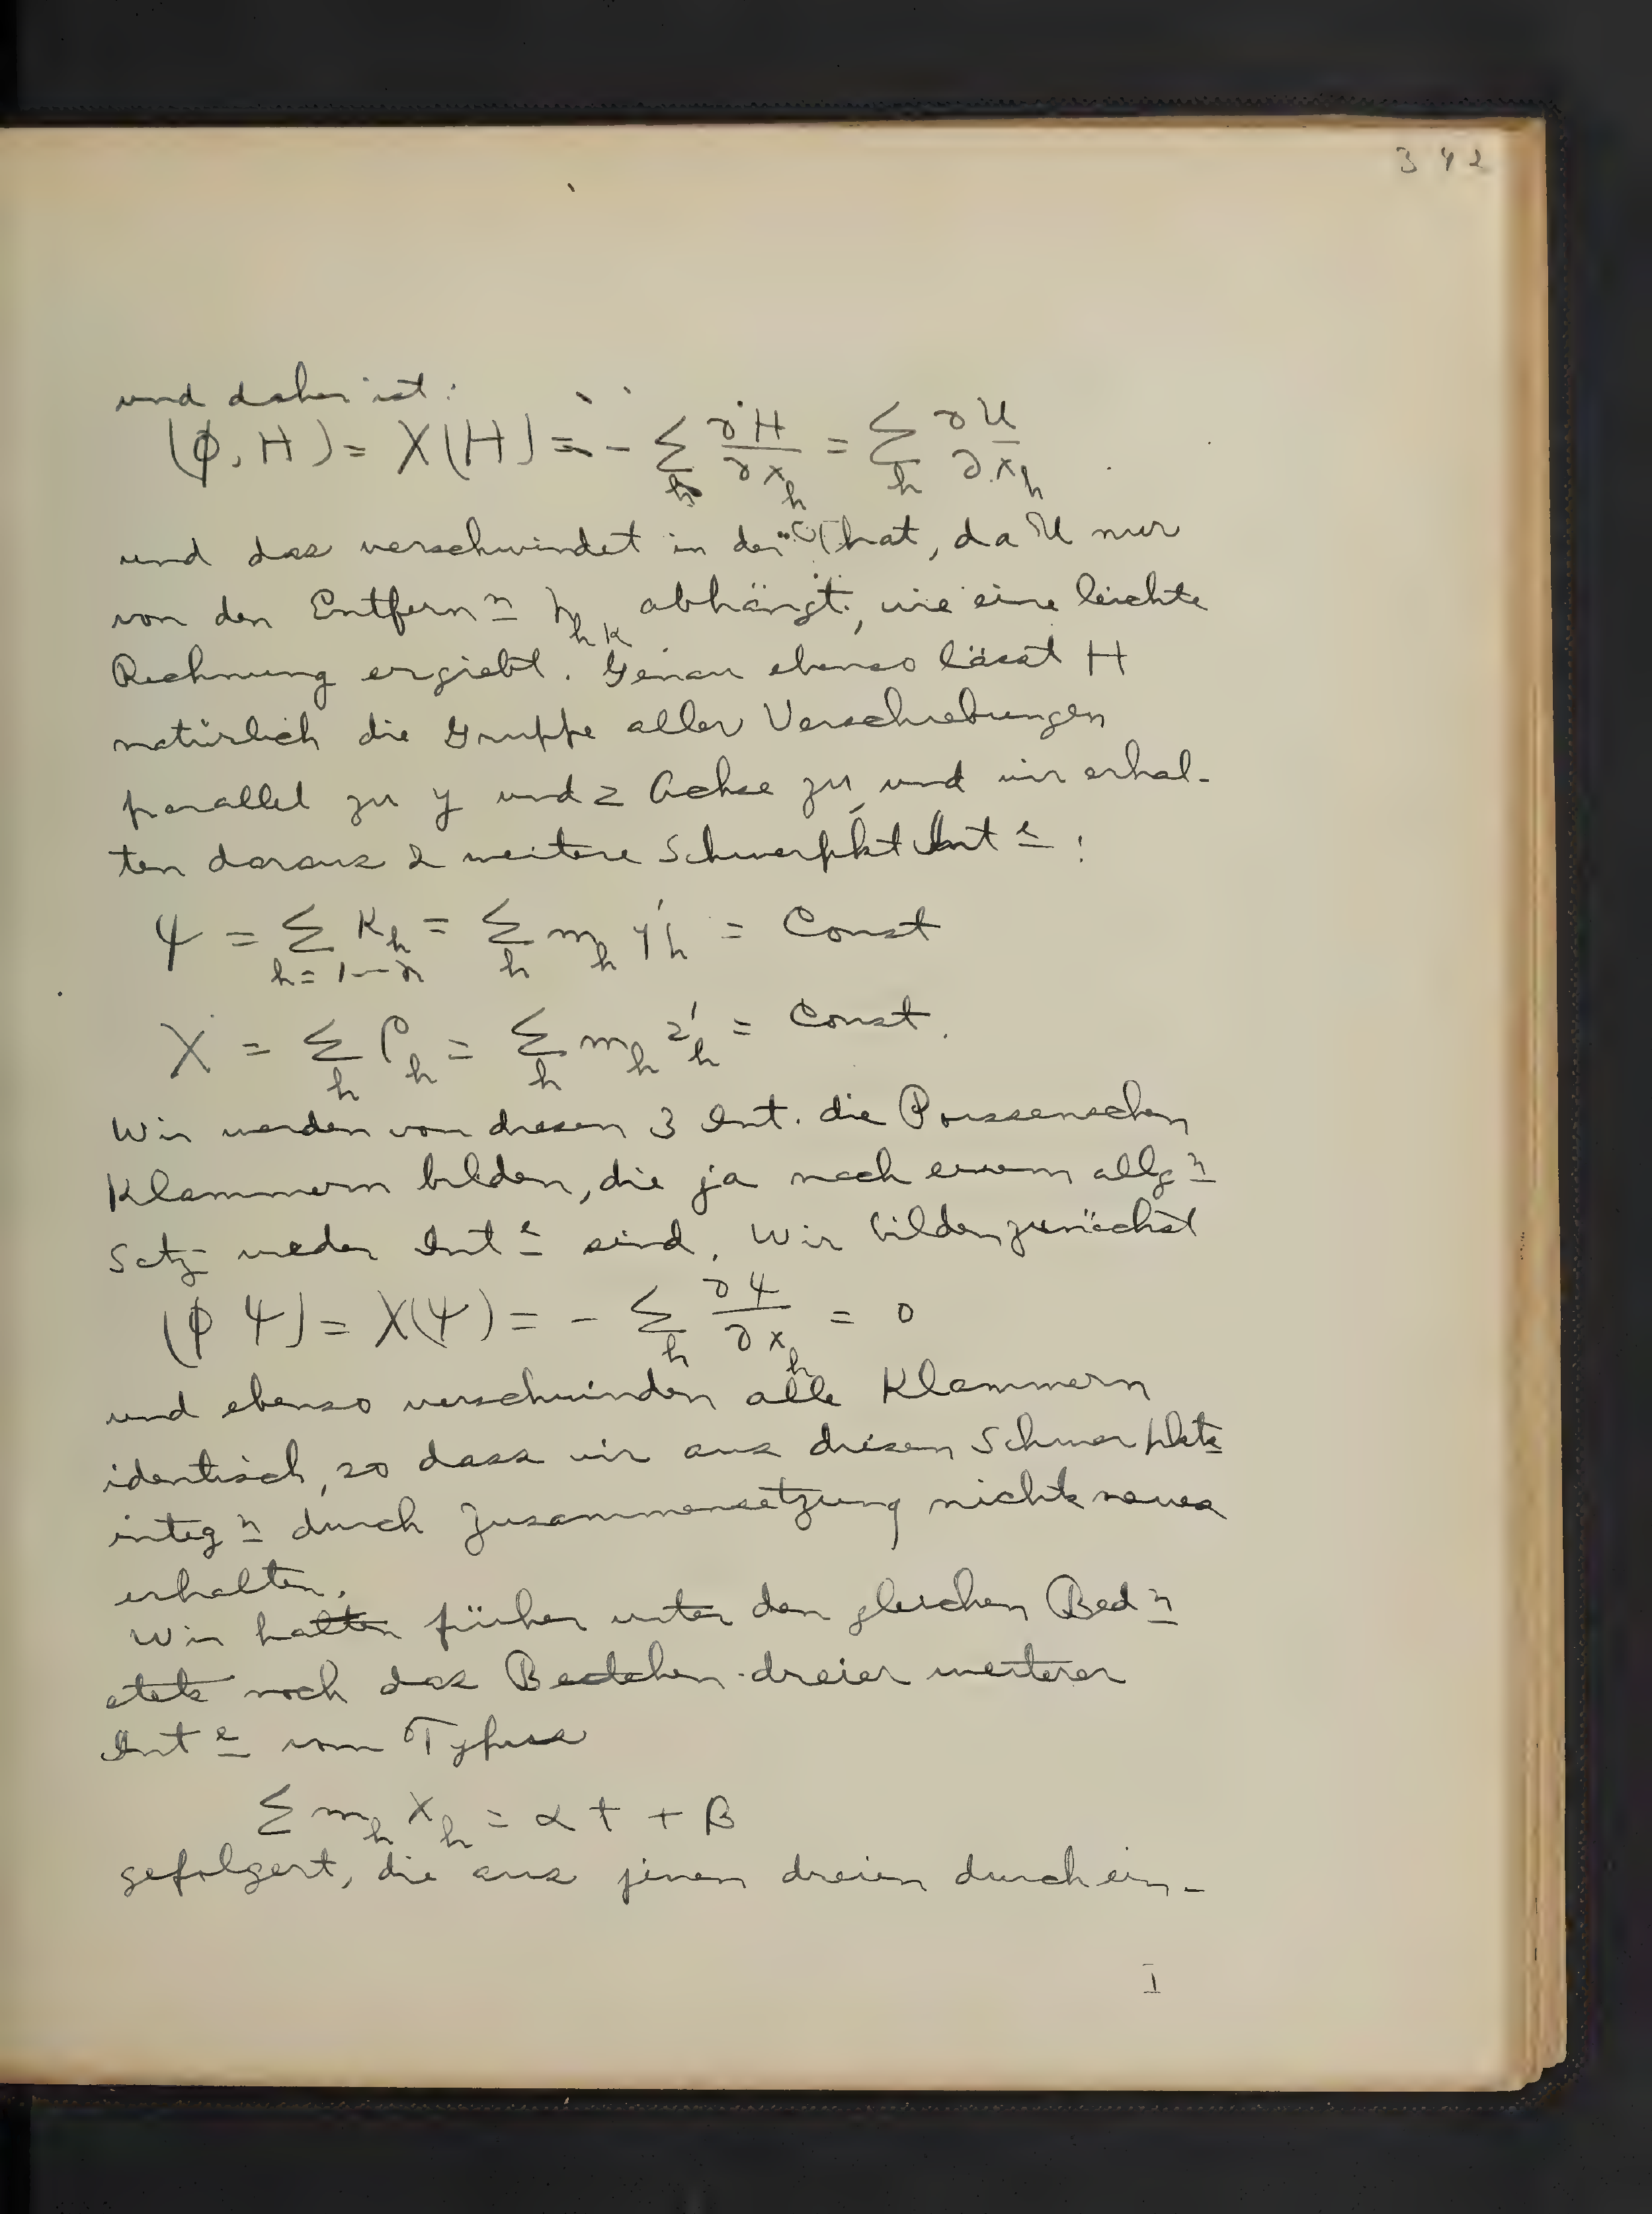 342
und daher ist:
(ϕ, H) = X(H) = - ∑_h ∂H/∂x_h = ∑_h ∂U/∂x_h
und das verschwindet in der That, da U nur
von den Entfern n̲ r_hk abhängt, wie eine leichte
Rechnung ergiebt. Genau ebenso lässt H
natürlich die Gruppe aller Verschiebungen
parallel zu y und z Achse zu, und wir erhal-
ten daraus 2 weitere Schwerpkt Int e̲:
Ψ = ∑_{h=1-n} K_h = ∑_h m_h y'_h = Const
X = ∑_h ρ_h = ∑_h m_h z'_h = Const.
Wir werden von diesen 3 Int. die Poissonschen
Klammern bilden, die ja nach einem allg n̲
Satz wieder Int e̲ sind. Wir bilden zunächst
(ϕ Ψ) = X(Ψ) = - ∑_h ∂Ψ/∂x_h = 0
und ebenso verschwinden alle Klammern
identisch, so dass wir aus diesen Schwerpkts
integ n̲ durch Zusammensetzung nichts neues
erhalten.
Wir hatten früher unter den gleichen Bed n̲
stets noch das Bestehen dreier weiterer
Int e̲ vom Typus
∑ m_h x_h = αt + β
gefolgert, die aus jenen dreien durch ein-
I